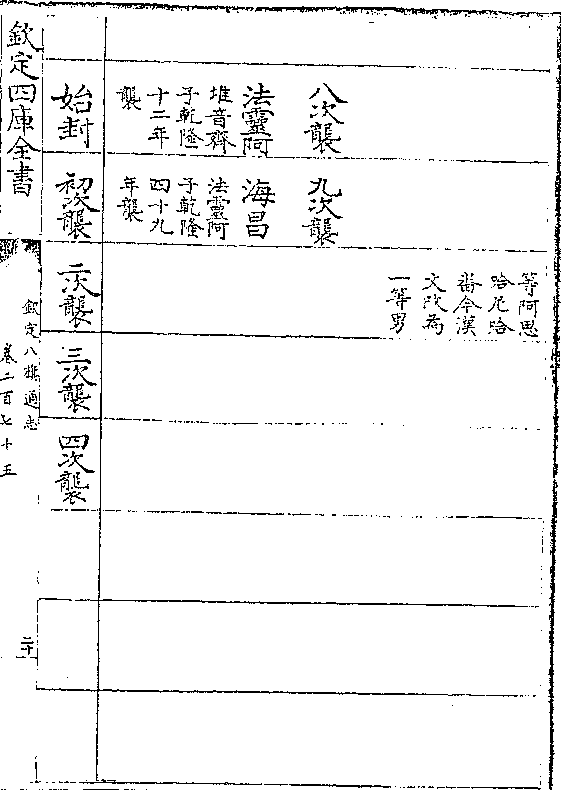 等阿思
哈尼哈
番今漢
文改為
一等男
八次襲
法靈阿
堆音齊
子乾隆
十二年
襲
九次襲
海昌
法靈阿
子乾隆
四十九
年襲
始封
初次襲
二次襲
三次襲
四次襲
欽定四庫全書
欽定八旗通志
卷二百七十五